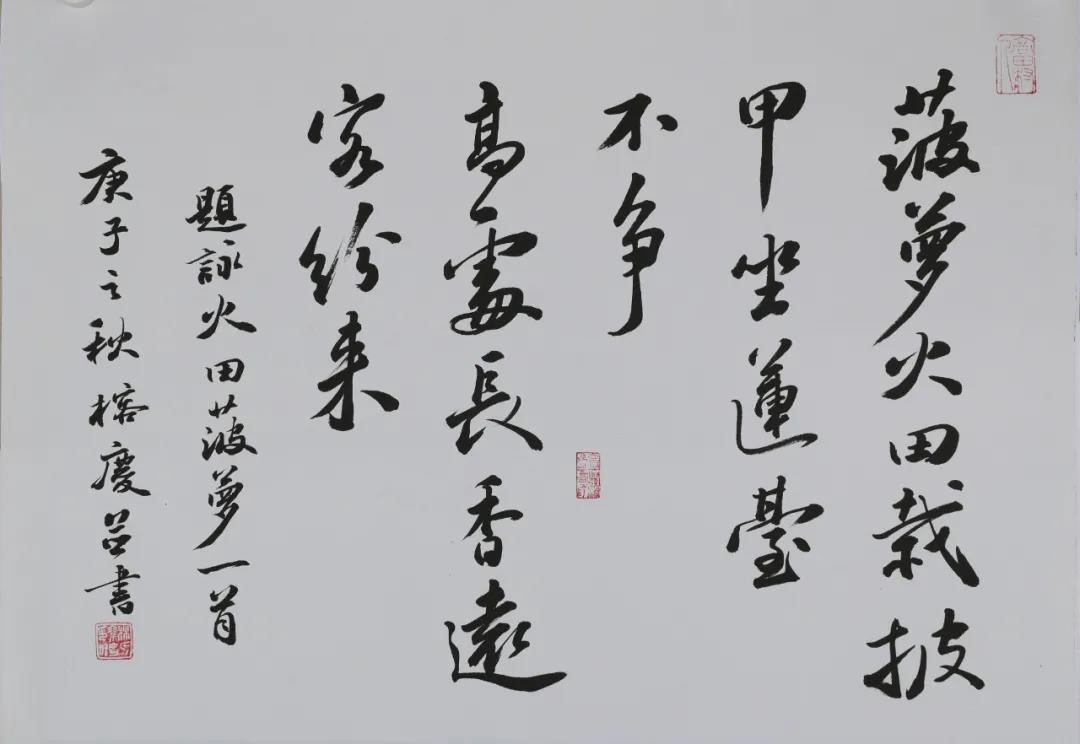 菠萝火田栽披
甲坐蓮臺
不争
高處長香遠
客纷来
題詠火田菠萝一首
庚子之秋榕慶吕書